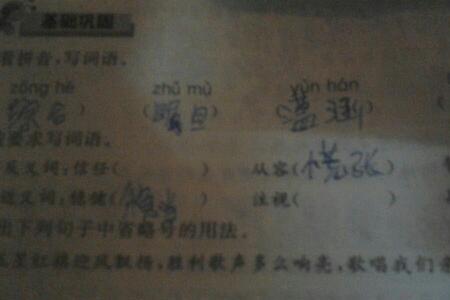 基础巩固
看拼音,写词语。
zōng hé zhǔ mù yùn hán
(综合) (瞩目) (蕴涵) (
要求写词语。
反义词:信任( ) 从容(慌张)
近义词:稳健(稳当) 注视( )
出下列句子中省略号的用法。
五星红旗迎风飘扬,胜利歌声多么响亮,歌唱我们亲